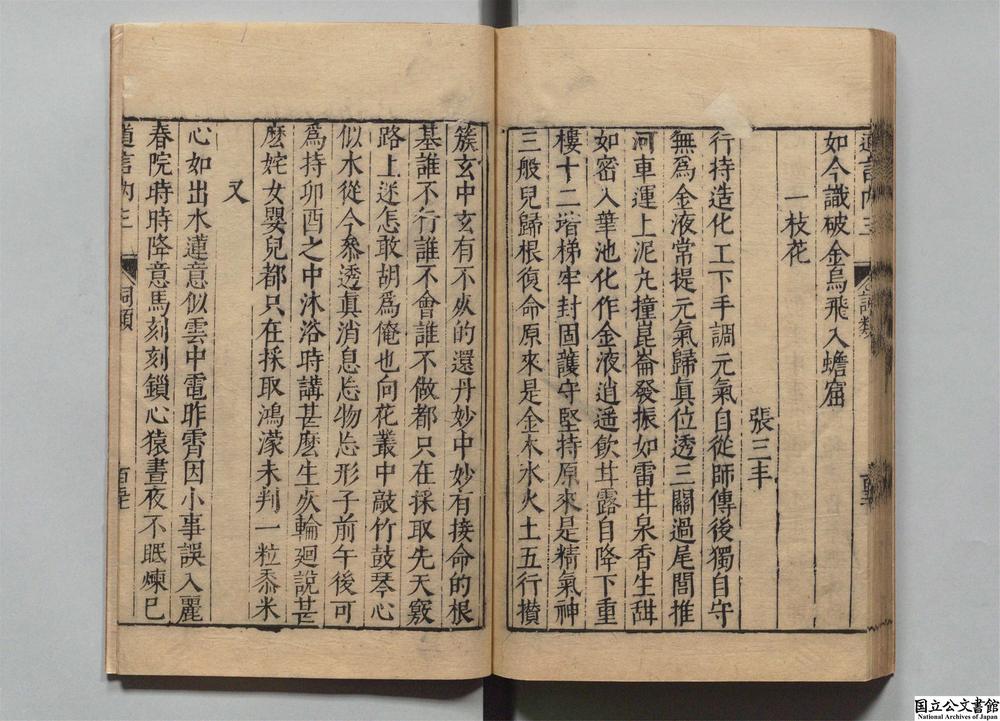 道言內三
詞類
如今識破金烏飛入蟾窟
一枝花
張三丰
行持造化工下手調元氣自從師傳後獨自守
無爲金液常提元氣歸眞位透三關過尾閭推
河車運上泥丸撞崑崙發振如雷甘泉香生甜
如密入華池化作金液逍遥飲甘露自降下重
樓十二堦梯牢封固護守堅持原來是精氣神
三般兒歸根復命原來是金木水火土五行攅
簇玄中玄有不死的還丹妙中妙有接命的根
基誰不行誰不會誰不做都只在採取先天竅
路上迷怎敢胡爲俺也向花叢中敲竹鼓琴心
似水從今叅透眞消息忘物忘形子前午後可
爲持卯酉之中沐浴時講甚麽生死輪廻說甚
麽姹女嬰兒都只在採取鴻濛未判一粒黍米
又
心如出水蓮意似雲中電昨霄因小事誤入麗
春院時時降意馬刻刻鎖心猿晝夜不眠煉巳
道言內三
詞類
国立公文書館
National Archives of Japan